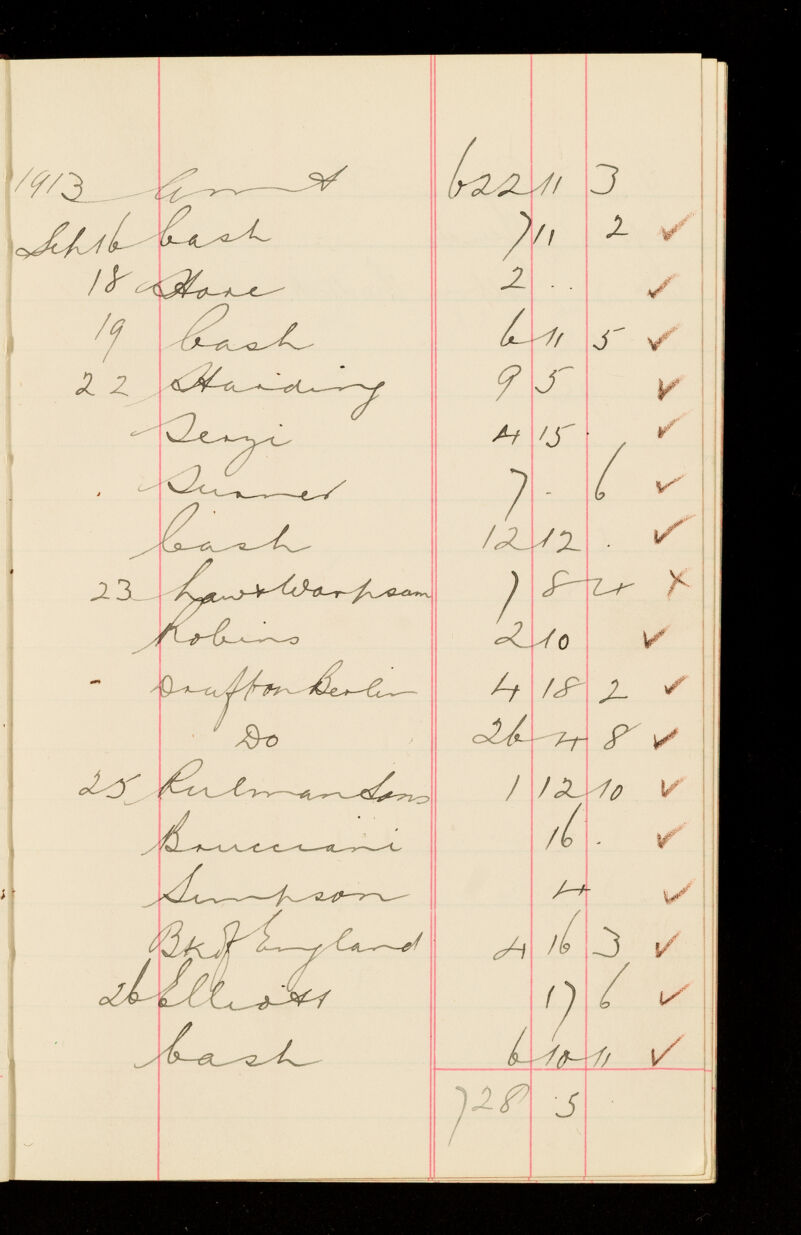 1913 Amt 622 11 3
Feb 16 Cash 7 11 2 ✓
18 Hare 2 . . ✓
19 Cash 6 11 5 ✓
22 Harding 9 5 ✓
4 15 . ✓
Sumner 7 . 6 ✓
Cash 12 12 . ✓
23 7 8 4 ×
Robins 2 10 ✓
Draft on Berlin 4 18 2 ✓
Do 26 4 8 ✓
25 Sons 1 12 10 ✓
Brucciani 16 . ✓
Simpson 4 ✓
Bk of England 4 16 3 ✓
26 Elliott 17 6 ✓
Cash 6 10 11 ✓
728 . 5